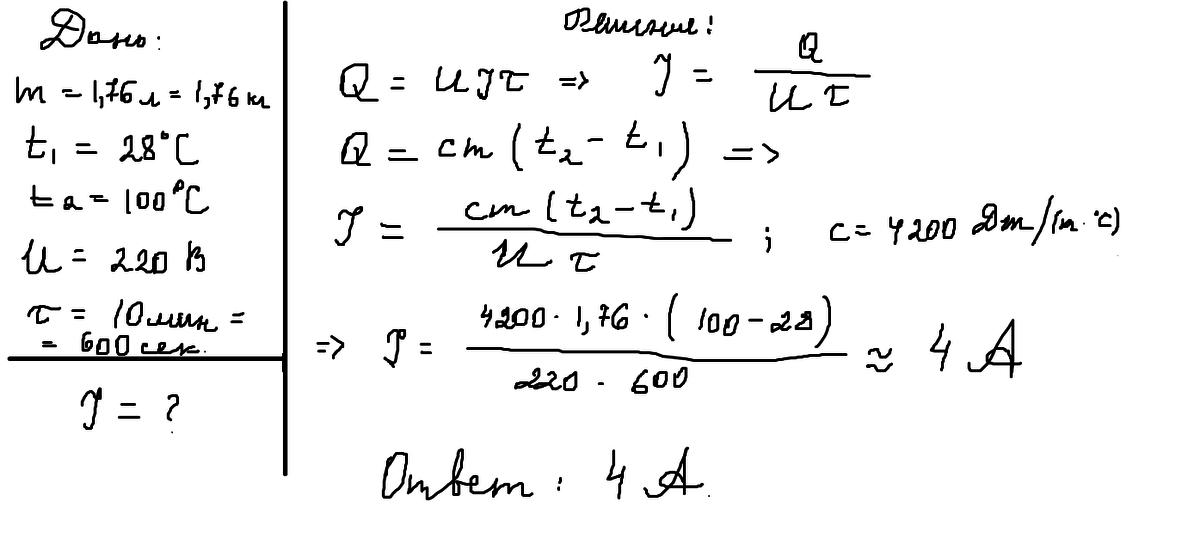 Дано:
m = 1,76 л = 1,76 кг
t₁ = 28°C
t₂ = 100°C
U = 220 В
τ = 10 мин =
= 600 сек.
I = ?
Решение:
Q = UIτ => I = Q / Uτ
Q = cm (t₂ - t₁) =>
I = cm (t₂ - t₁) / Uτ ; c = 4200 Дж/(кг·°C)
=> I = 4200 · 1,76 · (100 - 28) / 220 · 600 ≈ 4 A
Ответ: 4 A.